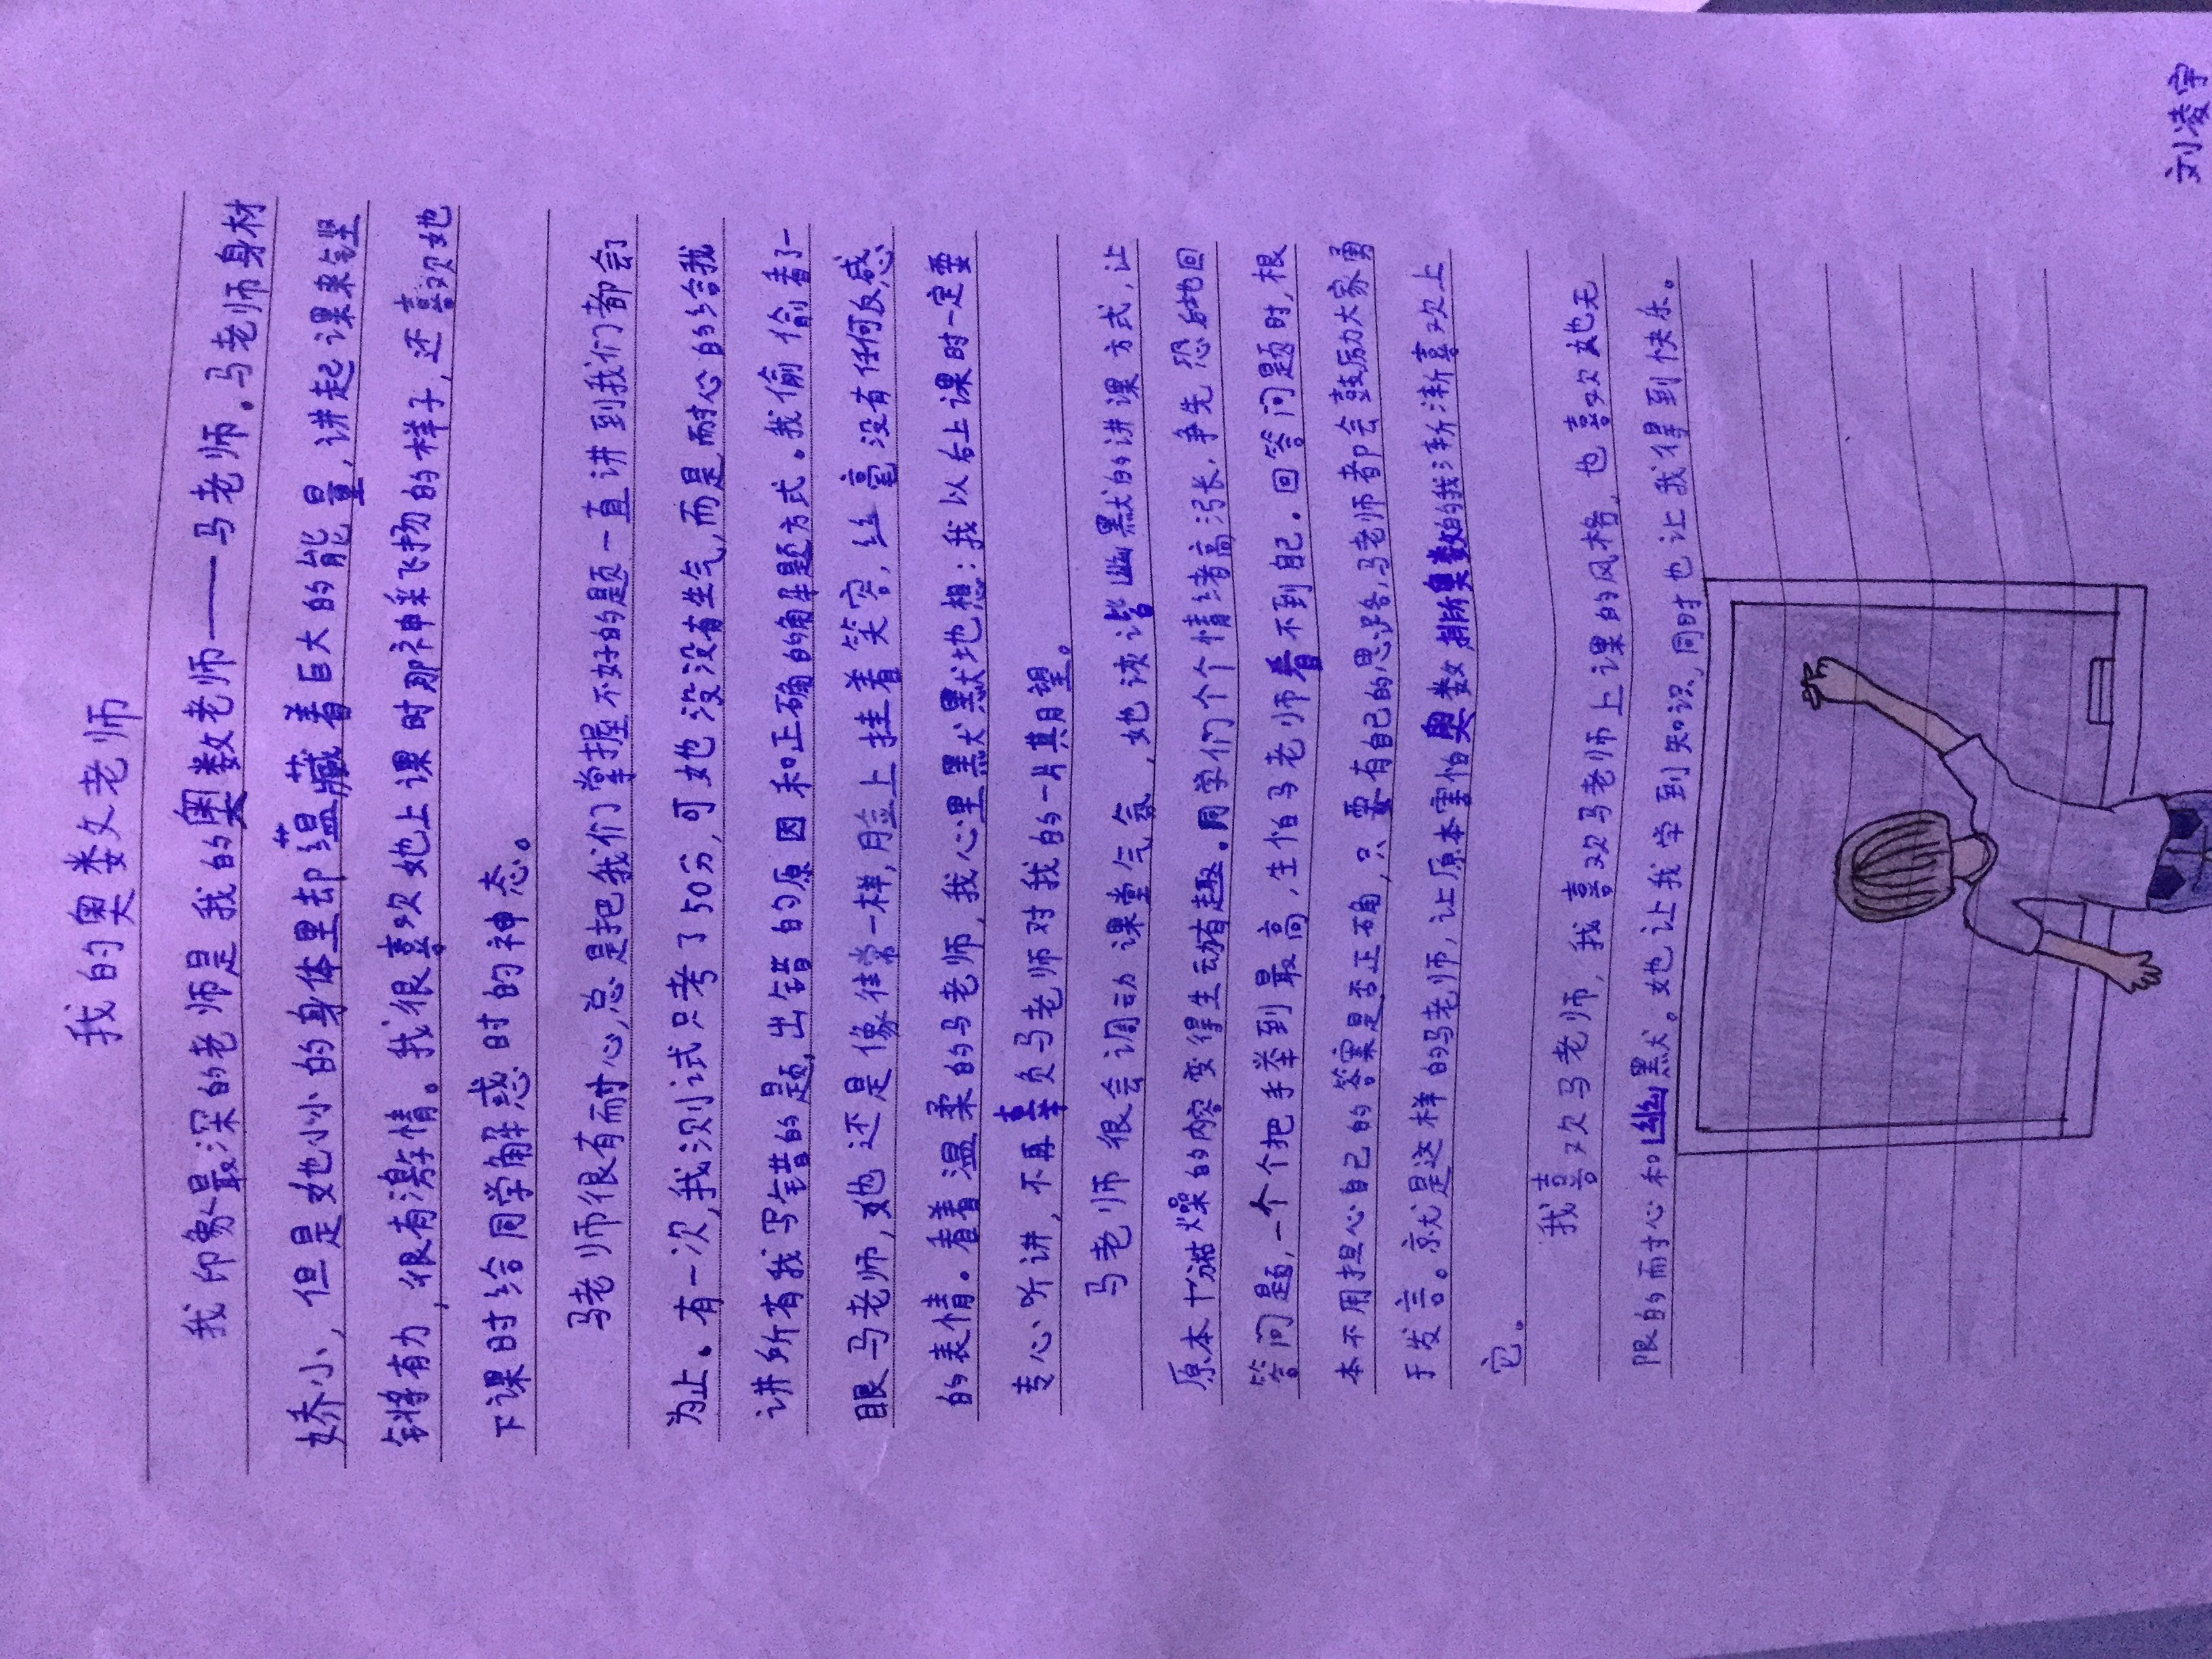 我的奥数老师
我印象最深的老师是我的奥数老师——马老师。马老师身材
娇小，但是她小小的身体里却蕴藏着巨大的能量，讲起课来铿
锵有力，很有激情。我很喜欢她上课时那神采飞扬的样子，还喜欢她
下课时给同学解惑时的神态。
马老师很有耐心，总是把我们掌握不好的题一直讲到我们都会了
为止。有一次，我测试只考了50分，可她没没有生气，而是耐心的给我
讲所有我写错的题，出错的原因和正确的解题方式。我偷偷看了一
眼马老师，她还是像往常一样，脸上挂着笑容，丝毫没有任何反感
的表情。看着温柔的马老师，我心里默默地想：我以后上课时一定要
专心听讲，不再辜负马老师对我的一片期望。
马老师很会调动课堂气氛，她诙谐幽默的讲课方式，让
原本枯燥的内容变得生动有趣。同学们个个情绪高涨，争先恐地回
答问题，一个个把手举到最高，生怕马老师看不到自己。回答问题时，根
本不用担心自己的答案是否正确，只要有自己的思路，马老师都会鼓励大家勇
于发言。就是这样的马老师，让原本害怕奥数，排斥奥数的我渐渐喜欢上
它。
我喜欢马老师，我喜欢马老师上课的风格，也喜欢她无
限的耐心和幽默。她让我学到知识，同时也让我得到快乐。
刘凌宇